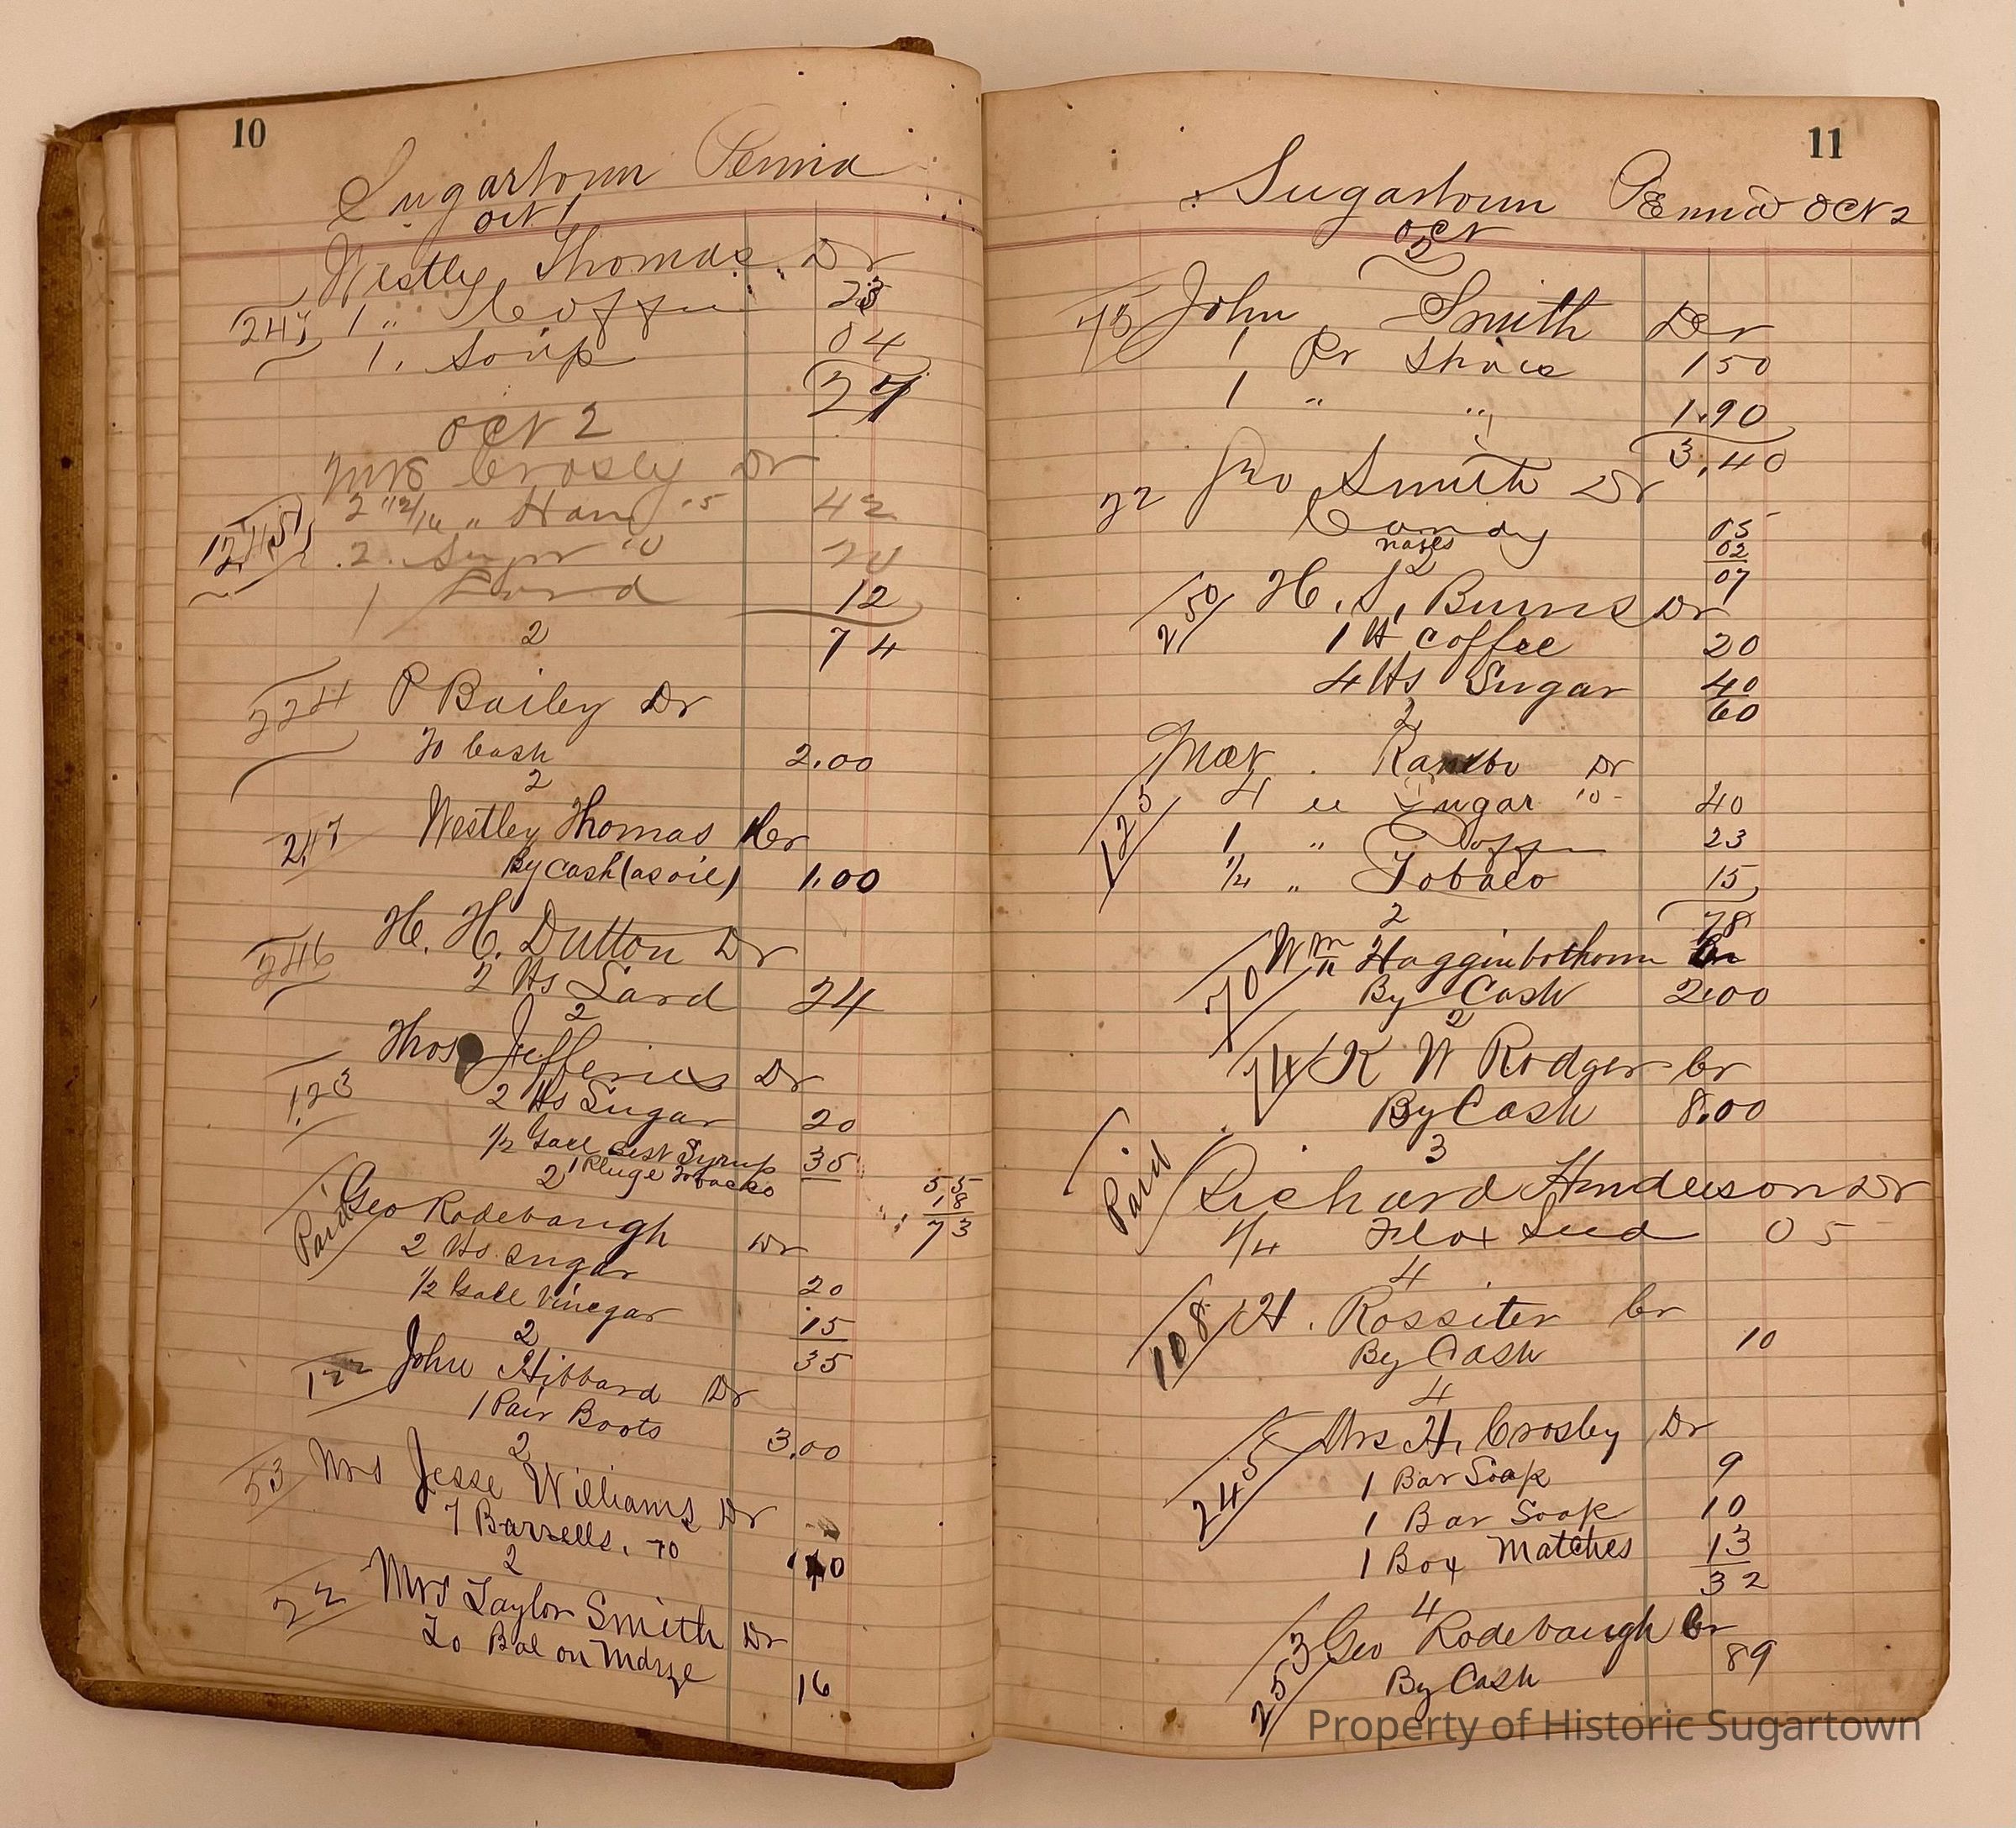 10
Sugartown Penna
Oct 1
Westley Thomas Dr
247 1 " Coffee 23
1. Soap 04
27
Oct 2
Mrs Crosly Dr
245 2 12/16 " Ham 15 42
2. Sugar 10 20
1 Lard 12
2 74
224 P Bailey Dr
To Cash 2.00
2
247 Westley Thomas Cr
By Cash (as oil) 1.00
246 H. H. Dutton Dr
2 lbs Lard 24
2
Thos Jefferies Dr
123 2 lbs Sugar 20
1/2 Gall Best Syrup 35
1 Pluge Tobacko 55
2 18
73
Paid Geo Rodebaugh Dr
2 lbs Sugar 20
1/2 Gall Vinegar 15
2 35
122 John Hibbard Dr
1 Pair Boots 3.00
2
53 Mrs Jesse Williams Dr
7 Barrells. 70
2
22 Mrs Taylor Smith Dr
To Bal on Mdrze 16
11
Sugartown Penna Oct 2
Oct
2
75 John Smith Dr
1 Pr Shoes 150
1 " " 1.90
3.40
22 Jno Smith Dr
Candy 05
02
2 07
250 H. S. Burns Dr
1 lb Coffee 20
4 lbs Sugar 40
2 60
Max. Rambo Dr
125 4 " Sugar 10 - 40
1 " Coffee 23
1/4 " Tobaco 15
2 78
70 Wm Hagginbothom Cr
By Cash 2.00
2
74 K W Rodger Cr
By Cash 8.00
3
Paid Richard Henderson Dr
1/4 Flax Seed 05
4
108 H. Rossiter Cr
By Cash 10
4
245 Mrs H. Crosby Dr
1 Bar Soap 9
1 Bar Soap 10
1 Box Matches 13
32
4
253 Geo Rodebaugh Cr
By Cash 89
Property of Historic Sugartown